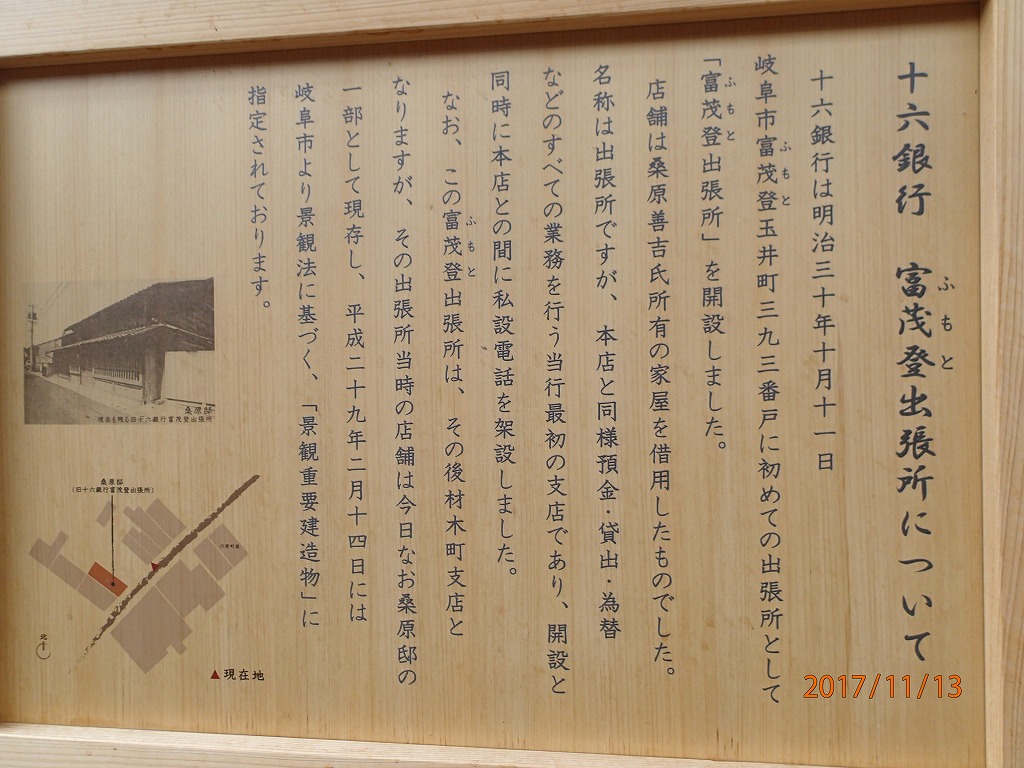 十六銀行　富茂登出張所について
ふもと
十六銀行は明治三十年十月十一日
岐阜市富茂登玉井町三九三番戸に初めての出張所として
ふもと
「富茂登出張所」を開設しました。
ふもと
店舗は桑原善吉氏所有の家屋を借用したものでした。
名称は出張所ですが、本店と同様預金・貸出・為替
などのすべての業務を行う当行最初の支店であり、開設と
同時に本店との間に私設電話を架設しました。
なお、この富茂登出張所は、その後材木町支店と
ふもと
なりますが、その出張所当時の店舗は今日なお桑原邸の
一部として現存し、平成二十九年二月十四日には
岐阜市より景観法に基づく、「景観重要建造物」に
指定されております。
桑原邸
現在も残る旧十六銀行富茂登出張所
桑原邸
(旧十六銀行富茂登出張所)
北
▲現在地
2017/11/13